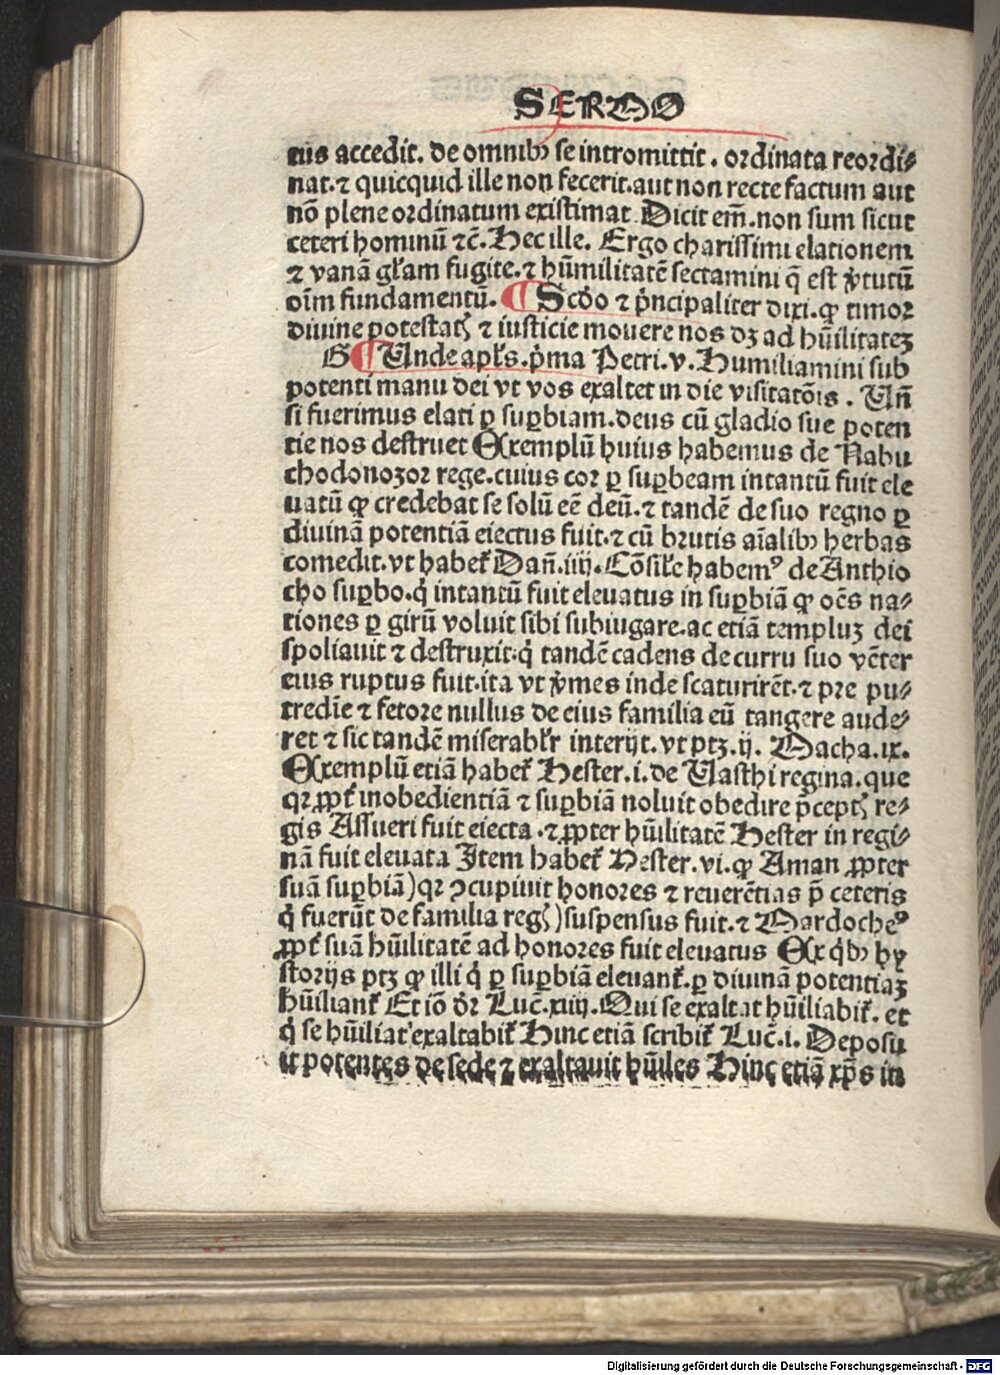 SERMO
tus accedit. de omnibꝫ se intromittit. ordinata reordi⸗
nat.⁊ quicquid ille non fecerit.aut non recte factum aut
nō plene ordinatum existimat Dicit em̄.non sum sicut
ceteri hominū ⁊c̄. Hec ille. Ergo charissimi elationem
⁊ vanā gl̄am fugite.⁊ hūmilitatē sectamini q̄ est v̄tutū
oīm fundamentū. ¶ Scd̄o ⁊ p̄ncipaliter dixi.ꝙ timor
diuine potestatꝭ ⁊ iusticie mouere nos dꝫ ad hūilitateꝫ
G ¶ Unde apl̄s.p̄ma Petri.v.Humiliamini sub
potenti manu dei vt vos exaltet in die visitatōis. Un̄
si fuerimus elati ꝑ suꝑbiam.deus cū gladio sue poten
tie nos destruet Exemplū huius habemus de Nabu
chodonozor rege.cuius cor ꝑ suꝑbeam intantū fuit ele
uatū ꝙ credebat se solū eē deū.⁊ tandē de suo regno ꝑ
diuinā potentiā eiectus fuit.⁊ cū brutis aīalibꝫ herbas
comedit.vt habet᷑ Dan̄.iiij.Cōsil̄r habemꝰ de Anthio
cho suꝑbo.q̇ intantū fuit eleuatus in suꝑbiā ꝙ oēs na⸗
tiones ꝑ girū voluit sibi subiugare.ac etiā templuꝫ dei
spoliauit ⁊ destruxit.q̇ tandē cadens de curru suo vēter
eius ruptus fuit.ita vt v̄mes inde scaturirēt.⁊ pre pu⸗
tredīe ⁊ fetore nullus de eius familia eū tangere aude⸗
ret ⁊ sic tandē miserabl̄r interijt.vt ptꝫ.ij. Macha.ix.
Exemplū etiā habet᷑ Hester.i.de Vasthi regina.que
qꝛ ꝓpt᷑ inobedientiā ⁊ suꝑbiā noluit obedire p̄ceptꝭ re⸗
gis Assueri fuit eiecta.⁊ ꝓpter hūilitatē Hester in regi⸗
nā fuit eleuata Item habet᷑ Hester.vi.ꝙ Aman ꝓpter
suā suꝑbiā)qꝛ ꝯcupiuit honores ⁊ reuerētias p̄ ceteris
q̇ fuerūt de familia regꝭ)suspensus fuit.⁊ Mardocheꝰ
ꝓpt᷑ suā hūilitatē ad honores fuit eleuatus Ex q̇bꝫ hy
storijs ptꝫ ꝙ illi q̇ ꝑ suꝑbiā eleuant᷑.ꝑ diuinā potentiaꝫ
hūiliant᷑ Et iō dr̄ Luc̄.xiiij.Qui se exaltat hūiliabit᷑. et
q̇ se hūiliat exaltabit᷑ Hinc etiā scribit᷑ Luc̄.i. Deposu
it potentes de sede ⁊ exaltauit hūiles Hinc etiā xp̄s in
Digitalisierung gefördert durch die Deutsche Forschungsgemeinschaft - DFG